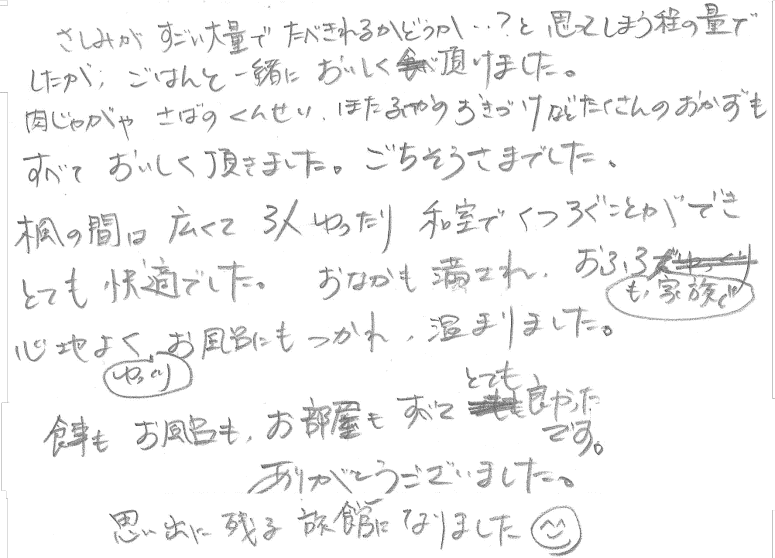 さしみが すごい大量で たべきれるかどうか‥?と 思ってしまう程の量で
したが、ごはんと一緒に おいしく 頂けました。
肉じゃがや さばのくんせい、ほたるいかのおきづけなどたくさんのおかずも
すべて おいしく頂きました。ごちそうさまでした。
楓の間は 広くて 3人 ゆったり 和室で くつろぐことができ
とても 快適でした。 おなかも 満され、おふろ
も家族で
心地よく、お風呂にもつかれ、温まりました。
ゆっくり
とても
食事も お風呂も、お部屋も すべて 良かった
です。
ありがとうございました。
思い出に 残る 旅館になりました